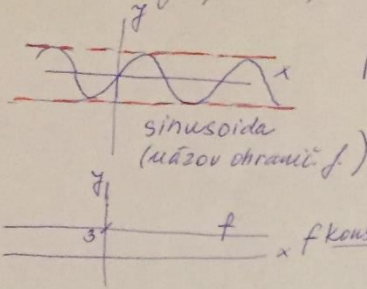 y
x
sinusoida
(názov ohranič. f.)
y
3 f
x f kons